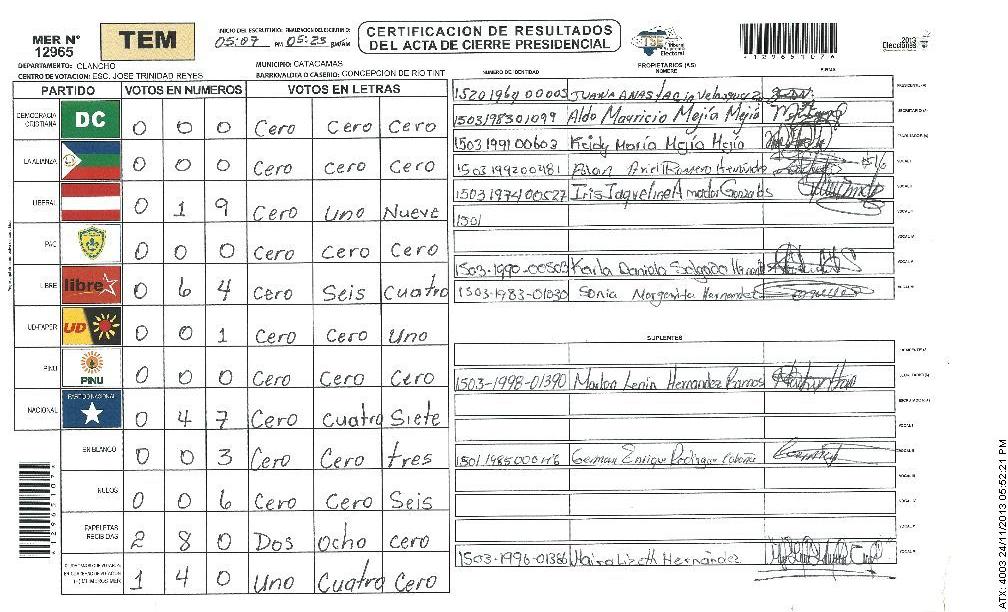 MER N° 12965
TEM
INICIO DEL ESCRUTINIO: FINALIZACION DEL ESCRUTINIO:
05:07 PM 05:23
CERTIFICACION DE RESULTADOS
DEL ACTA DE CIERRE PRESIDENCIAL
TSE Tribunal Supremo Electoral
2013
Elecciones
*129651076
DEPARTAMENTO: OLANCHO
MUNICIPIO: CATACAMAS
CENTRO DE VOTACION: ESC. JOSE TRINIDAD REYES
BARRIO/ALDIA O CASERIO: CONCEPCION DE RIO TINT
PARTIDO VOTOS EN NUMEROS VOTOS EN LETRAS
DEMOCRACIA CRISTIANA DC 0 0 0 Cero Cero Cero
LA ALIANZA 0 0 0 Cero Cero Cero
LIBERAL 0 1 9 Cero Uno Nueve
PAC 0 0 0 Cero Cero Cero
LIBRE libre 0 6 4 Cero Seis Cuatro
UD-FAPER UD 0 0 1 Cero Cero Uno
PINU PINU 0 0 0 Cero Cero Cero
NACIONAL PARTIDO NACIONAL 0 4 7 Cero Cuatro Siete
EN BLANCO 0 0 3 Cero Cero tres
NULOS 0 0 6 Cero Cero Seis
PAPELETAS RECIBIDAS 2 8 0 Dos ocho cero
1 4 0 Uno Cuatro Cero
NUMERO DE IDENTIDAD PROPIETARIOS (AS) NOMBRE FIRMA
JUANA ANASTACIA Velasquez
1503198301099 Aldo Mauricio Mejia Mejia
1503199100603 Keidy Maria Mejia Mejia
1503199200481 Ariel Romero Hernández
1503197400527 Iris Jaqueline Amador Gonzales
1501
1503-1990-00503 Karla Daniela Salgado
1503-1983-01030 Sonia Margarita Hernandez
SUPLENTES
1503-1998-01390 Marlon Lenin Hernandez Ramos
German Enrique Rodriguez
1503-1996-01386 Hernández
ATX: 4003 24/11/2013 05:52:21 PM